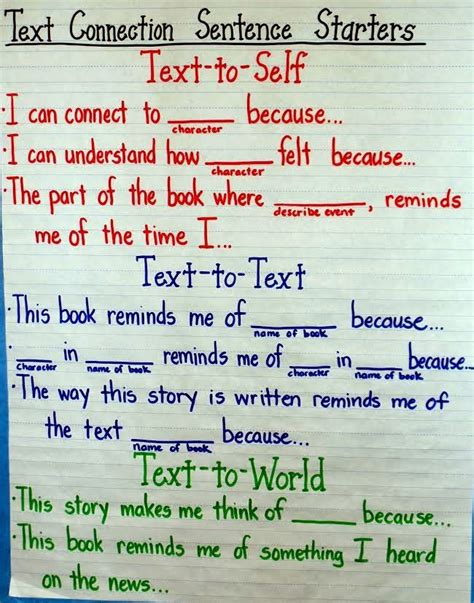 Text Connection Sentence Starters
Text-to-Self
·I can connect to ______ because...
character
·I can understand how ______ felt because...
character
·The part of the book where ______, reminds
describe event
me of the time I...
Text-to-Text
·This book reminds me of ______ because...
name of book
·____ in ______ reminds me of ____ in ____ because...
character name of book character name of book
·The way this story is written reminds me of
the text ______ because...
name of book
Text-to-World
·This story makes me think of ______ because...
·This book reminds me of something I heard
on the news...